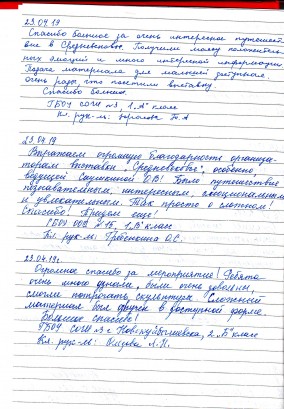 23.04.19
Спасибо большое за очень интересное путешест-
вие в Средневековье. Получили массу положитель-
ных эмоций и много интересной информации.
Подача материала для малышей доступная.
Очень рады, что посетили выставку.
Спасибо большое.
ГБОУ СОШ №3, 1 "А" класс
Кл. рук-ль:
23.04.19
Выражаем огромную благодарность организа-
торам выставки "Средневековье", особенно,
ведущей О.В! Было путешествие
познавательным, интересным, эмоциональным
и увлекательным. Так просто о сложном!
Спасибо! Придем еще!
ГБОУ ООШ №15, 1 "В" класс
Кл. рук-ль: Гребёнкина О.С.
23.04.19г.
Огромное спасибо за мероприятие! Ребята
очень много узнали, были очень довольны,
смогли потрогать скульптуры. Сложный
материал был в доступной форме.
Большое спасибо!
ГБОУ СОШ №3 г. Новокуйбышевска, 2 "Б" класс
Кл. рук-ль: Л.Н.